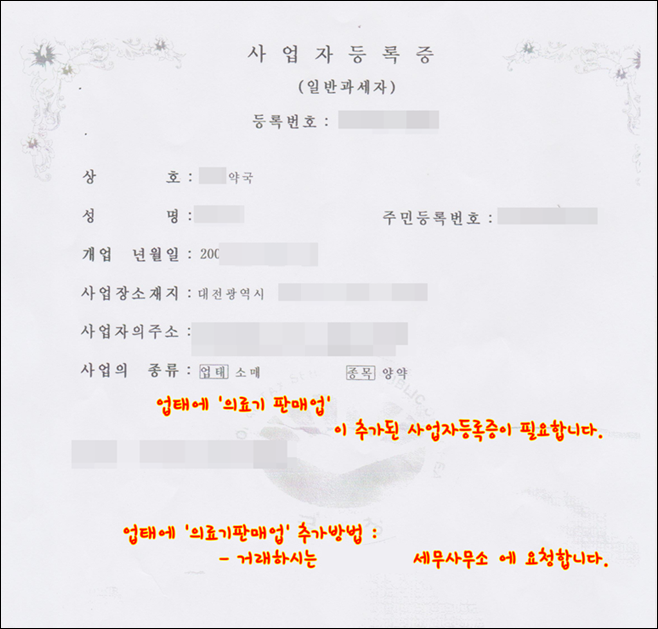 사업자등록증
(일반과세자)
등록번호 :
상 호 : 약국
성 명 : 주민등록번호 :
개업 년월일 : 200
사업장소재지 : 대전광역시
사업자의주소 :
사업의 종류 : 업태 소매 종목 양약
업태에 '의료기 판매업'
이 추가된 사업자등록증이 필요합니다.
업태에 '의료기판매업' 추가방법 :
- 거래하시는 세무사무소 에 요청합니다.